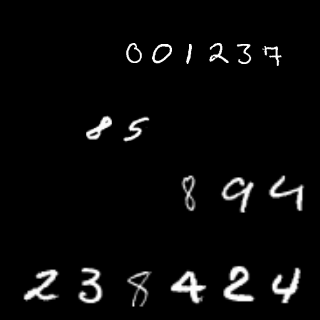 001237
85
894
238424